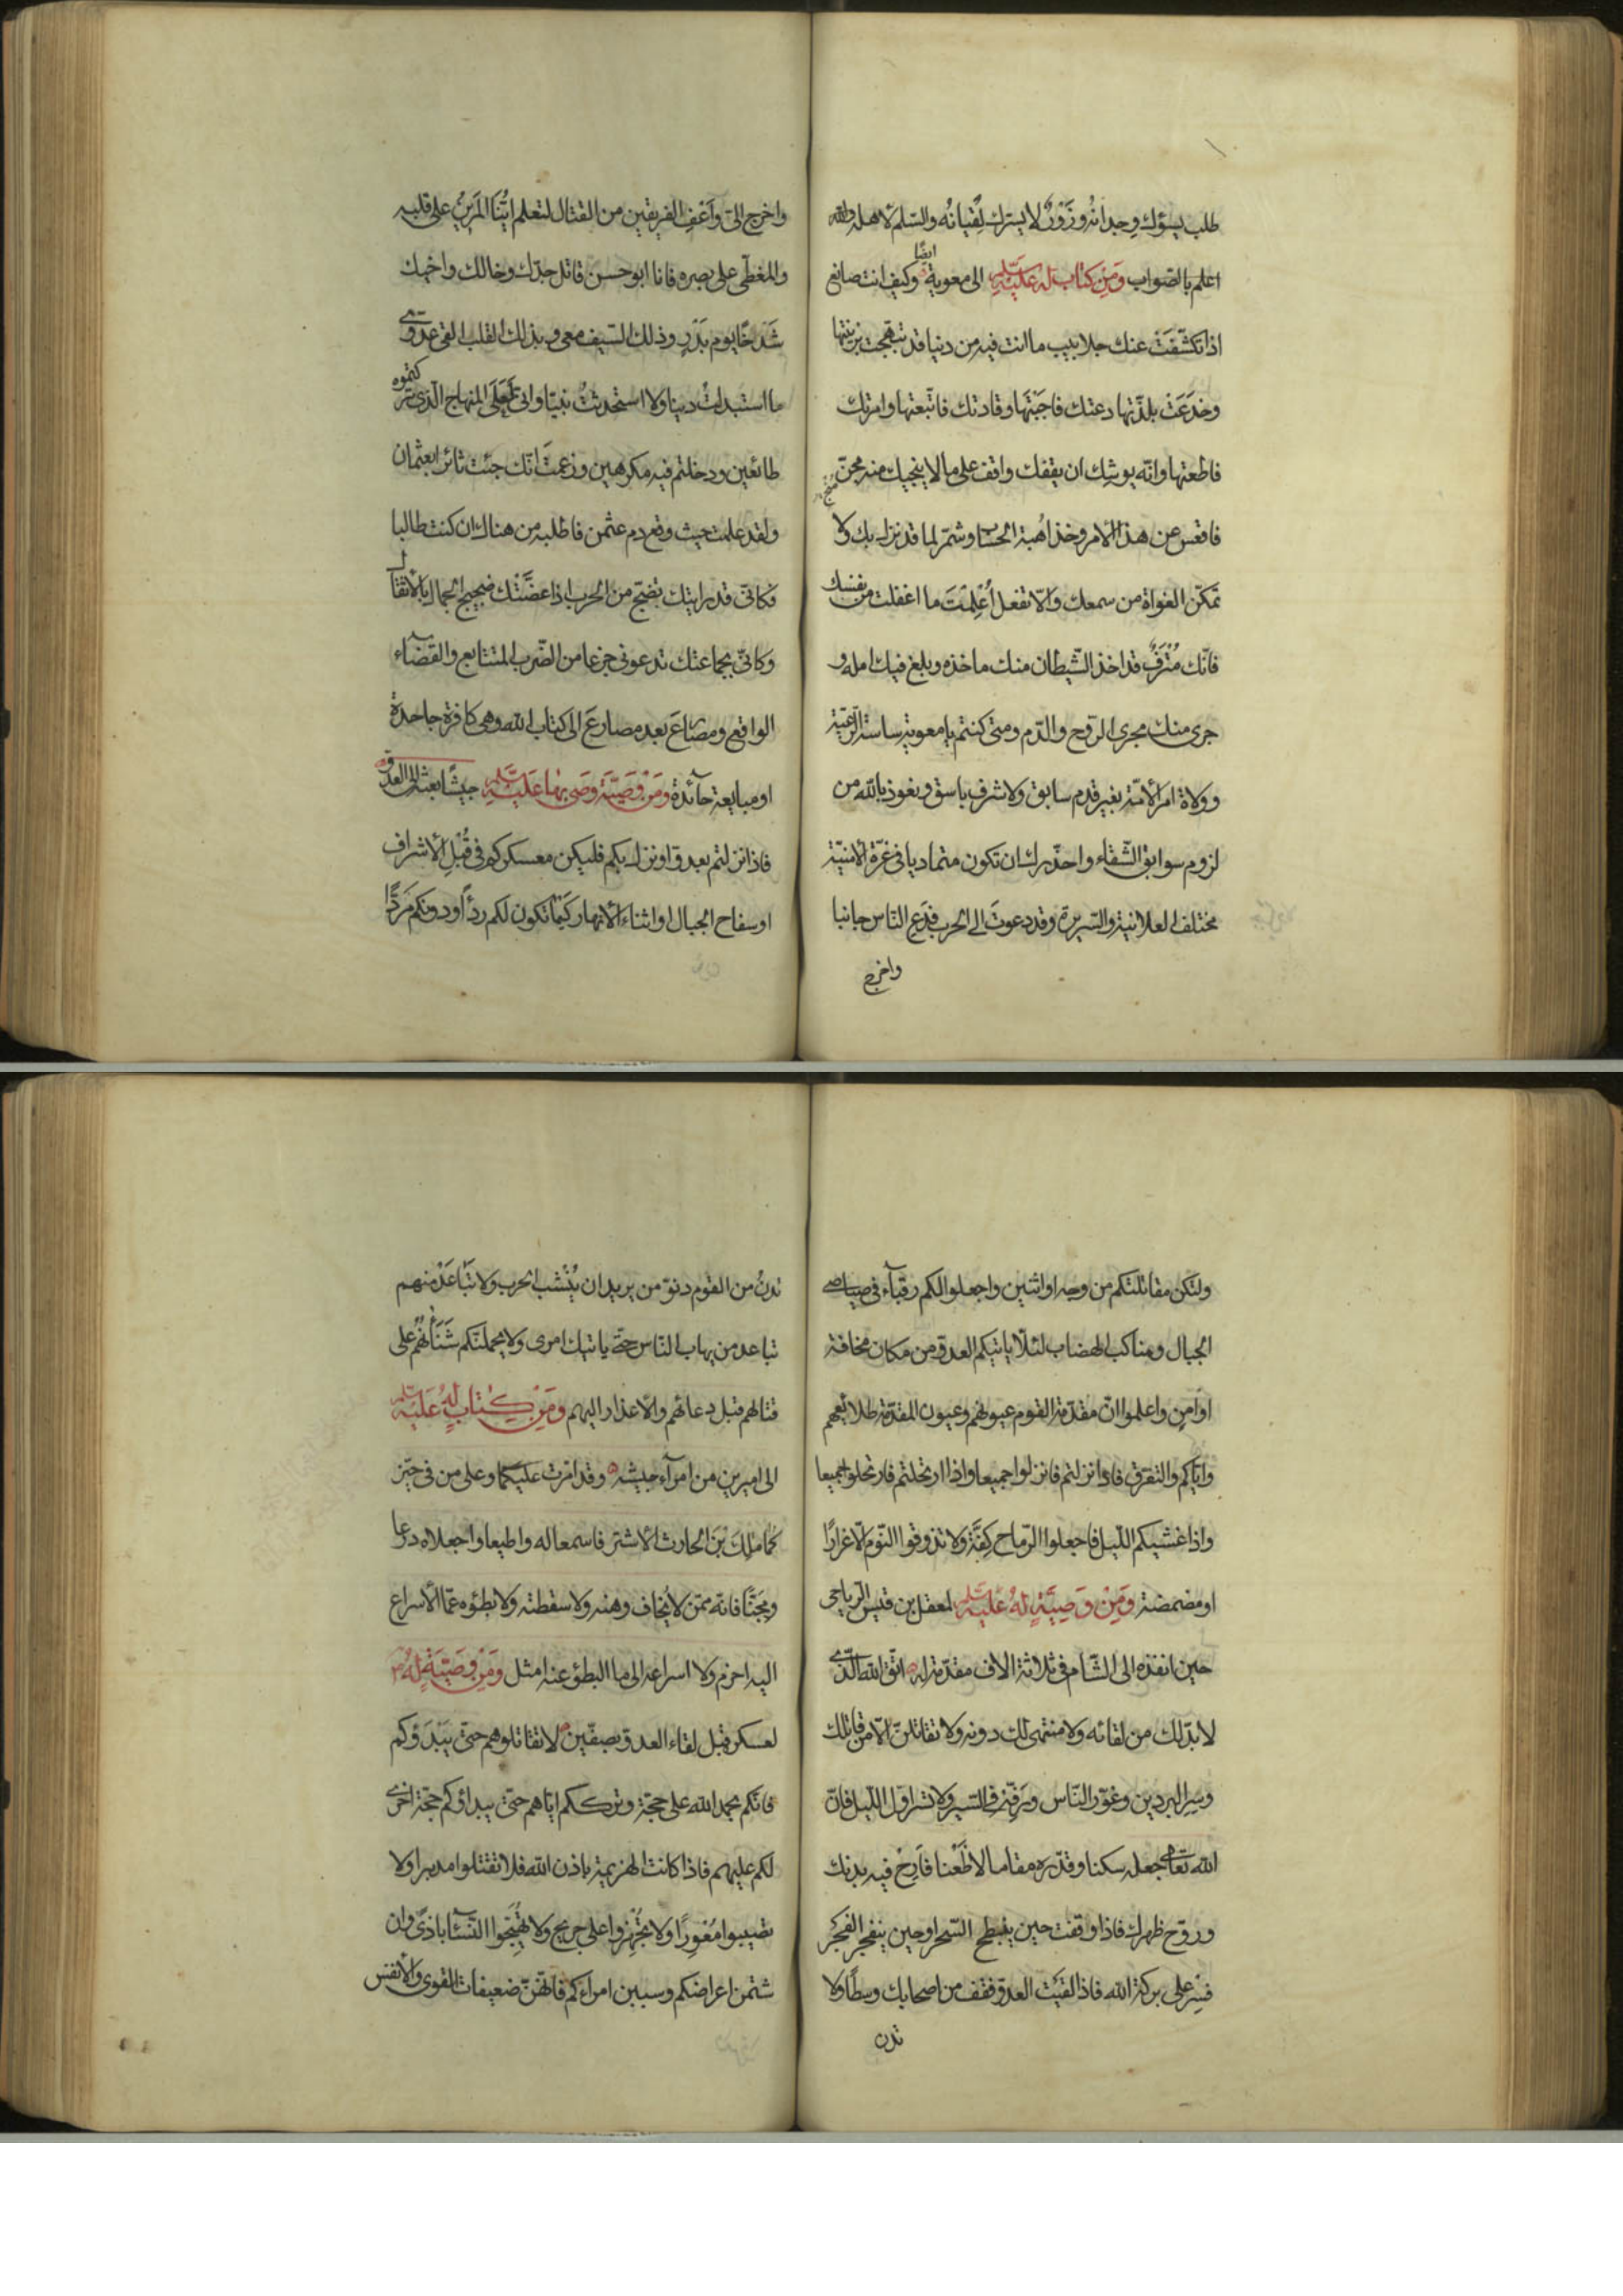 طلب يسؤك وجدانه وزَوْرٌ لا يسرك لُقيانُه والسّلم لاهله والله
اعلم بالصّواب وَمِنْ كتاب له عَليْه السّلم الى معوية ايضًا وكيف انت صانع
اذا تكشّفَتْ عنك جلابيب ما انت فيه من دنيا قد تبهّجت بزينتها
وخدَعَتْ بلذّتها دعتك فاجَبْتَها وقادتك فاتّبعتها وامرتك
فاطعتها وانّه يوشك ان يقفك واقف على ما لا ينجيك منه مجنّ
منج
فاقعس عن هذا الامر وخذ اُهبة الحساب وشمّر لما قد نزل بك ولا
تمكّن الغواة من سمعك والّا تفعل اُعْلِمْكَ ما اغفلت من نفسك
فانّك مُتْرَفٌ قد اخذ الشّيطان منك ماخذه وبلغ فيك امله و
جرى منك مجرى الرّوح والدّم ومتى كنتم يا معوية ساسة الرّعيّة
وولاة امر الامّة بغير قدم سابق ولا شرف باسق ونعوذ بالله من
لزوم سوابق الشّقاء واحذّرك ان تكون متماديا فى غرّة الامنيّة
مختلف العلانية والسّريرة وقد دعوتَ الى الحرب فدَعِ النّاس جانبا
واخرج
واخرج الىّ وَاَعْفِ الفريقين من القتال لتعلم ايّنا المَرينُ على قلبه
والمغطّى على بصره فانا ابو حسن قاتل جدّك وخالك واخيك
شَدْخًا يوم بَدْرٍ وذلك السّيف معى وبذلك القلب القى عدوّى
ما استبدلتُ دينا ولا استحدثتُ نبيّا وانّى لَعَلَى المنهاج الّذى تركتموه
طائعين ودخلتم فيه مكرهين وزعمتَ انّك جئت ثائرا بعثمان
ولقد علمت حيث وقع دم عثمن فاطلبه من هناك ان كنت طالبا
فكانّى قد رايتك تضجّ من الحرب اذا عضّتك ضجيج الجمال بالاثقال
وكانّى بجماعتك تدعونى جزعا من الضّرب المتتابع والقضآء
الواقع ومصارعَ بعد مصارعَ الى كتاب الله وهى كافرة جاحدة
او مبايعة حآئدة وَمِنْ وَصيَّة وَصّى بها عَليْه السّلم جيشًا بعثه الى العدوّ
فاذا نزلتم بعدوّ او نزل بكم فليكن معسكركم فى قُبُل الاشراف
او سفاح الجبال او اثناء الانهار كَيْما تكون لكم ردْأً ودونكم مَرَدًّا
ولتكن مقاتلتكم من وجه او اثنين واجعلوا لكم رقبآء فى صياصى
الجبال ومناكب الهضاب لئلّا ياتيكم العدوّ من مكان مخافة
او امنٍ واعلموا انّ مقدّمة القوم عيونهم وعيون المقدّمة طلائعهم
وايّاكم والتفرق فاذا نزلتم فانزلوا جميعا واذا ارتحلتم فارتحلوا جميعا
واذا غشيكم اللّيل فاجعلوا الرّماح كِفَّةً ولا تذوقوا النّوم الّا غرارًا
او مضمضة وَمِنْ وَصِيَّةٍ لهُ عَليْه السّلم لمعقل بن قيس الرّياحى
حين انفذه الى الشّام فى ثلاثة الاف مقدّمة له اتّق الله الّذى
لا بدّ لك من لقائه ولا منتهى لك دونه ولا تقاتلنّ الّا من قاتلك
وسِر البردين وغوّر النّاس ورَفّه فى السّير ولا تسر اوّل اللّيل فانّ
الله تعالى جعله سكنا وقدّره مقاما لا ظَعْنا فاَرِحْ فيه بدنك
وروّح ظهرك فاذا وقفت حين ينبطح السّحر او حين ينفجر الفجر
فسِرْ على بركة الله فاذا لقيت العدوّ فقف من اصحابك وسطًا ولا
تدن
تدنُ من القوم دنوّ من يريد ان يُنْشب الحرب ولا تَبَاعَدْ منهم
تباعد من يهاب النّاس حتّى ياتيك امرى ولا يحملنّكم شَنَآنُهم على
قتالهم قبل دعائهم والاعذار اليهم وَمِنْ كِتابٍ لهُ عَليْه السّلم
الى اميرين من امرآء جيشه وقد امّرت عليكما وعلى من فى حيّز
كُما مٰلِكَ بْنَ الحارث الاشتر فاسمعا له واطيعا واجعلاه درعا
ومِجَنًّا فانّه ممّن لا يُخاف وهنه ولا سقطته ولا بطؤه عمّا الاسراع
اليه احزم ولا اسراعه الى ما البطؤ عنه امثل وَمِنْ وَصيَّةٍ لهُ
لعسكره قبل لقاء العدوّ بصفّين لا تقاتلوهم حتّى يَبْدَؤكم
فانّكم بحمد الله على حجّة وتركـكم ايّاهم حتّى يبداؤكم حجّة اخرى
لكم عليهم فاذا كانت الهزيمة باذن الله فلا تقتلوا مدبرا ولا
تصيبوا مُعْورًا ولا تُجْهزوا على جريح ولا تهيّجوا النّسآء باذًى وان
شتمن اعراضكم وسببن امراءكم فانّهنّ ضعيفات القوى والانفس